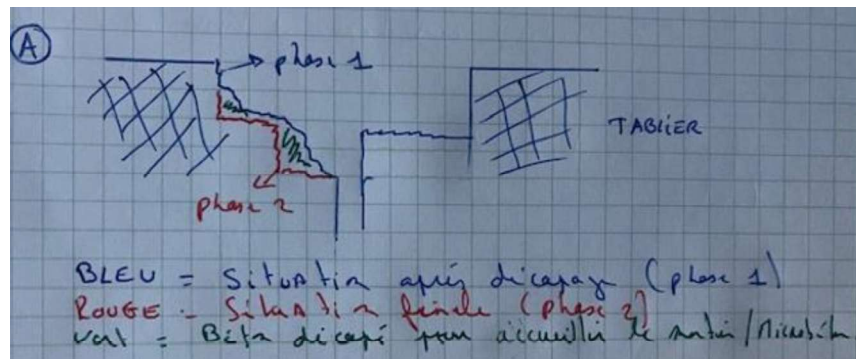 A
phase 1
TABLIER
phase 2
BLEU = Situation après décapage (phase 1)
ROUGE = Situation finale (phase 2)
Vert = Béton décapé pour accueillir le mortier/Microbéton